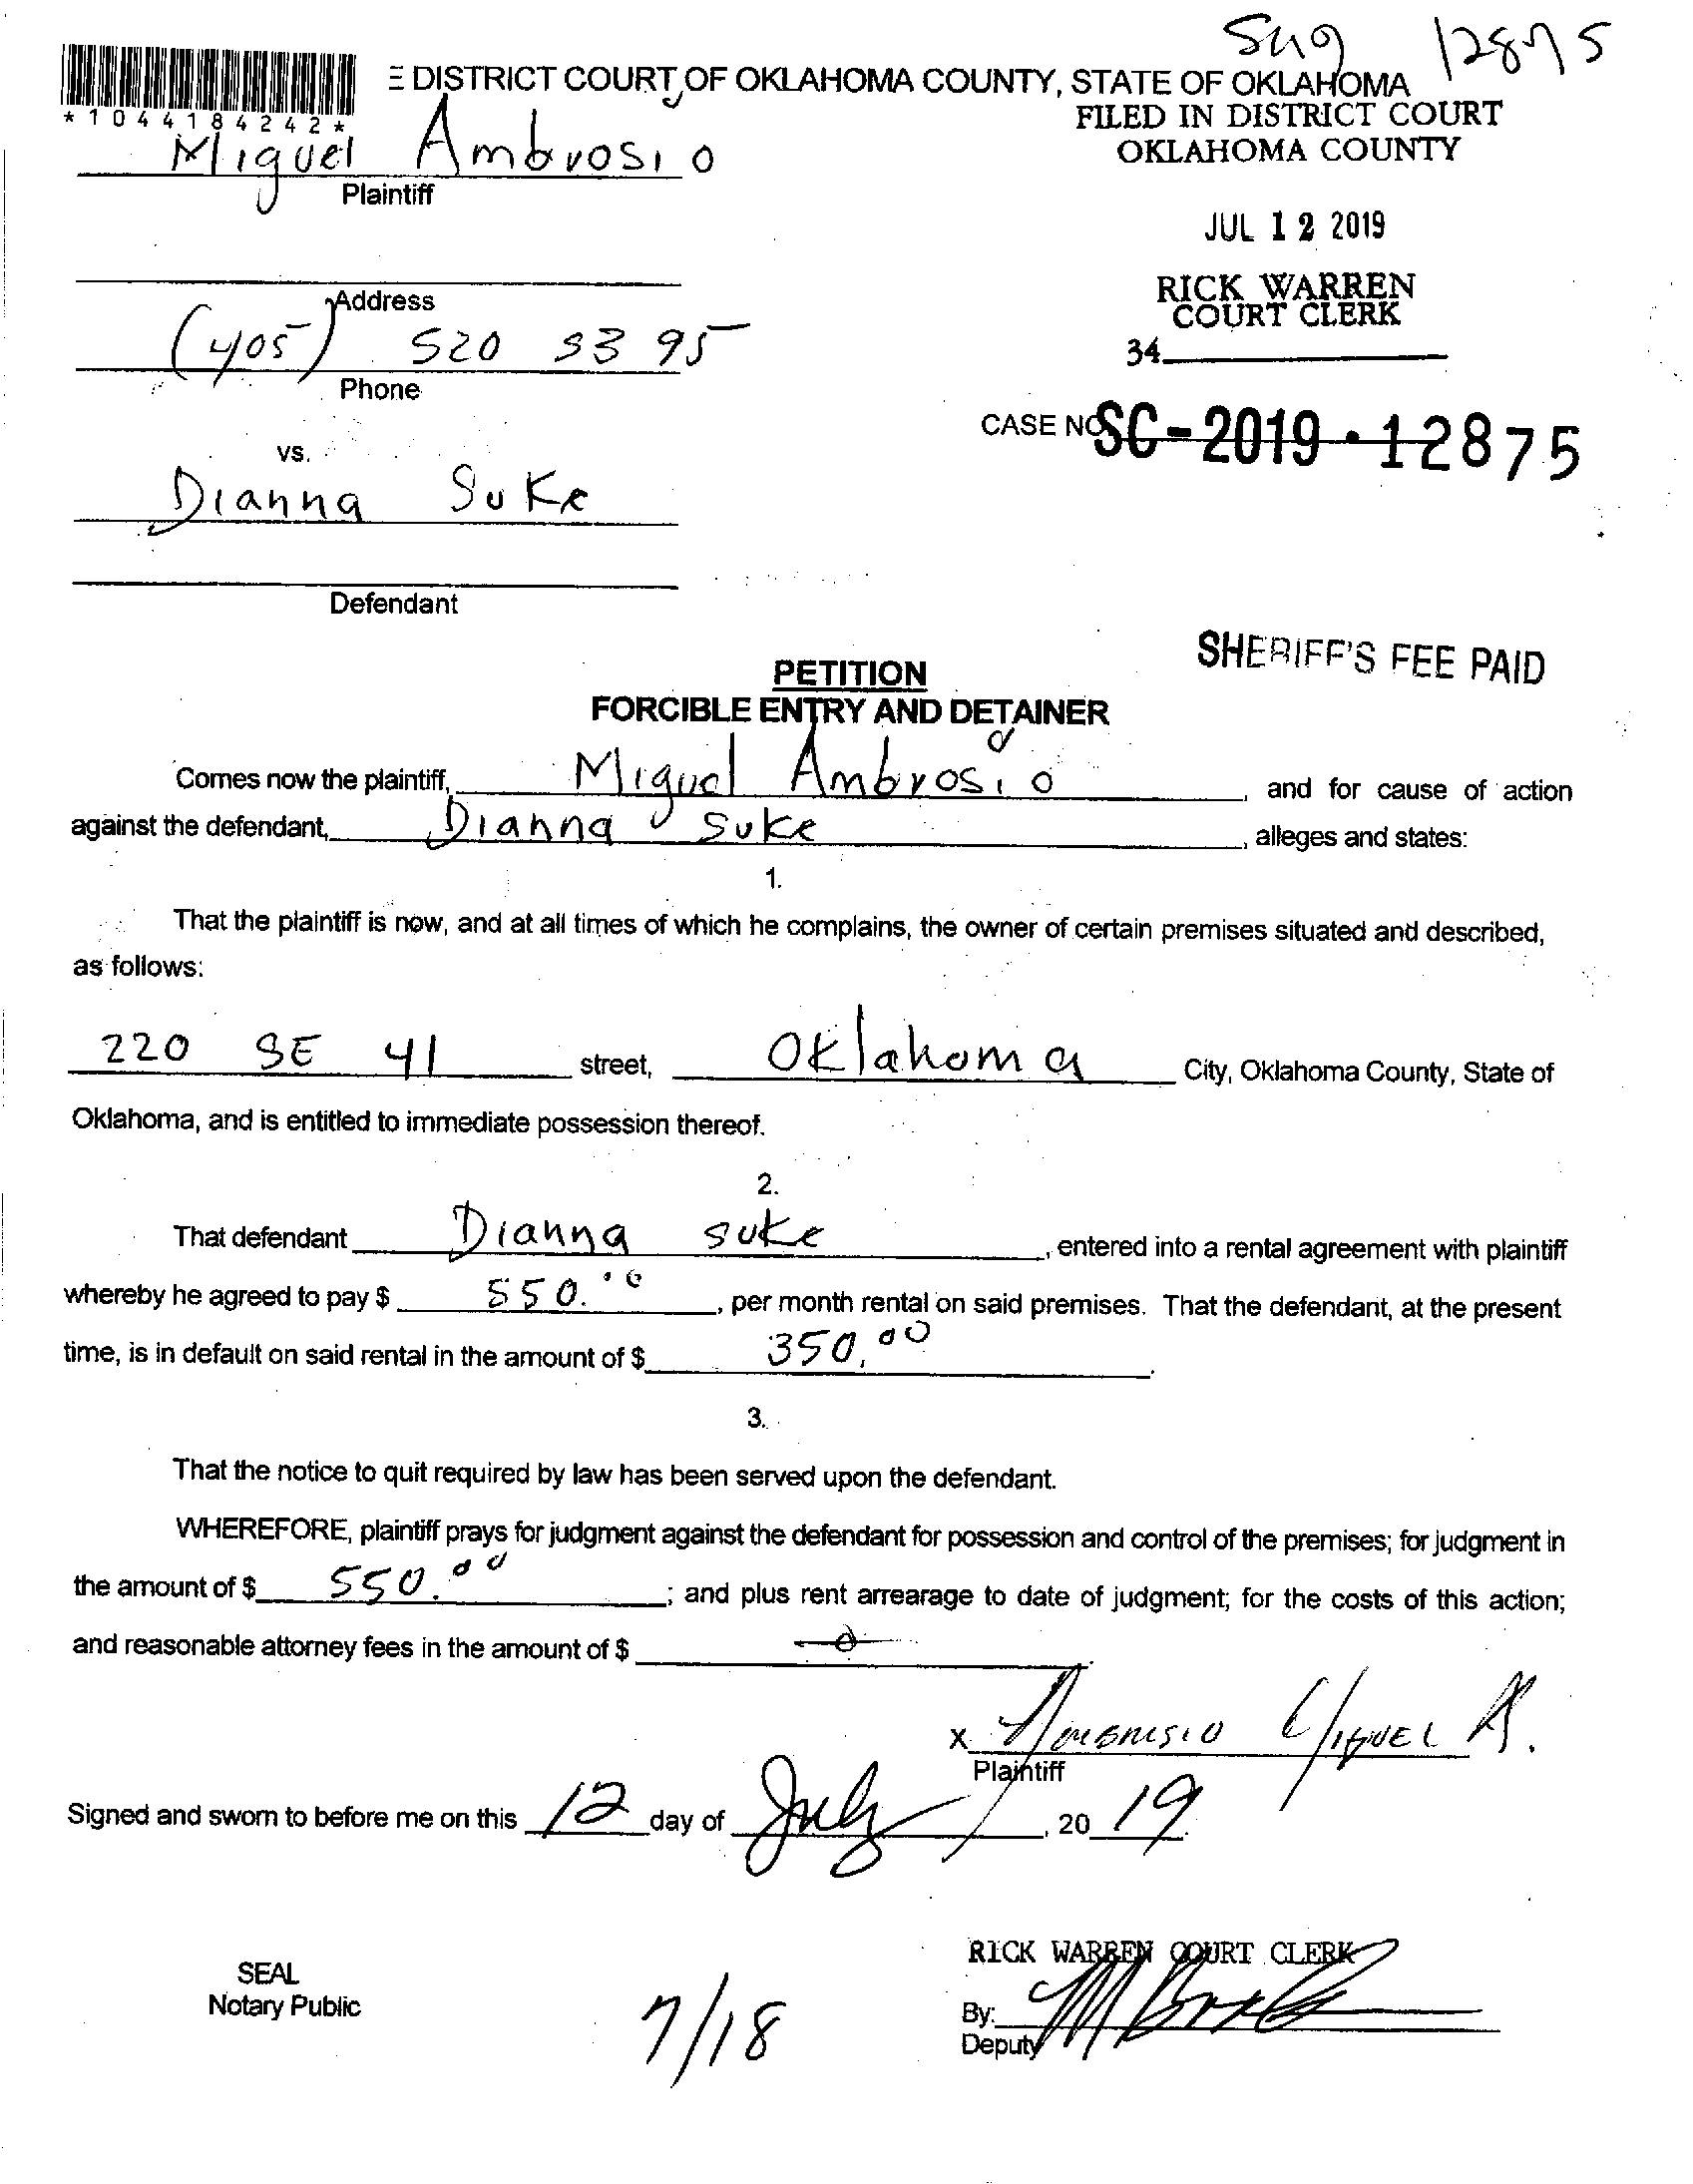 12875
E DISTRICT COURT OF OKLAHOMA COUNTY, STATE OF OKLAHOMA
*1044184242*
FILED IN DISTRICT COURT
OKLAHOMA COUNTY
Miguel Ambrosio
Plaintiff
JUL 12 2019
RICK WARREN
COURT CLERK
Address
34
(405) 520 3395
Phone
CASE NO SC-2019-12875
vs.
Dianna Suke
Defendant
SHERIFF'S FEE PAID
PETITION
FORCIBLE ENTRY AND DETAINER
Comes now the plaintiff, Miguel Ambrosio and for cause of action
against the defendant, Dianna Suke, alleges and states:
1.
That the plaintiff is now, and at all times of which he complains, the owner of certain premises situated and described,
as follows:
220 SE 41 street, Oklahoma City, Oklahoma County, State of
Oklahoma, and is entitled to immediate possession thereof.
2.
That defendant Dianna suke, entered into a rental agreement with plaintiff
whereby he agreed to pay $ 550.00, per month rental on said premises. That the defendant, at the present
time, is in default on said rental in the amount of $ 350.00.
3.
That the notice to quit required by law has been served upon the defendant.
WHEREFORE, plaintiff prays for judgment against the defendant for possession and control of the premises; for judgment in
the amount of $ 550.00; and plus rent arrearage to date of judgment; for the costs of this action;
and reasonable attorney fees in the amount of $ 0
X Ambrosio Miguel A.
Plaintiff
Signed and sworn to before me on this 12 day of July, 2019.
RICK WARREN COURT CLERK
SEAL
Notary Public
7/18
By:
Deputy